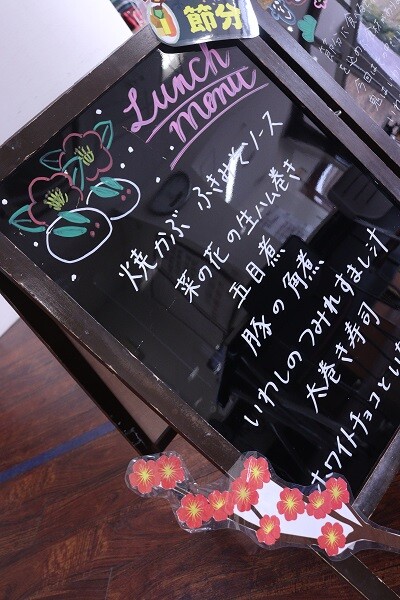 節分
Lunch
menu
焼かぶ ふきみそソース
菜の花の生ハム巻き
五目煮
豚の角煮
いわしのつみれすまし汁
太巻き寿司
ホワイトチョコといち